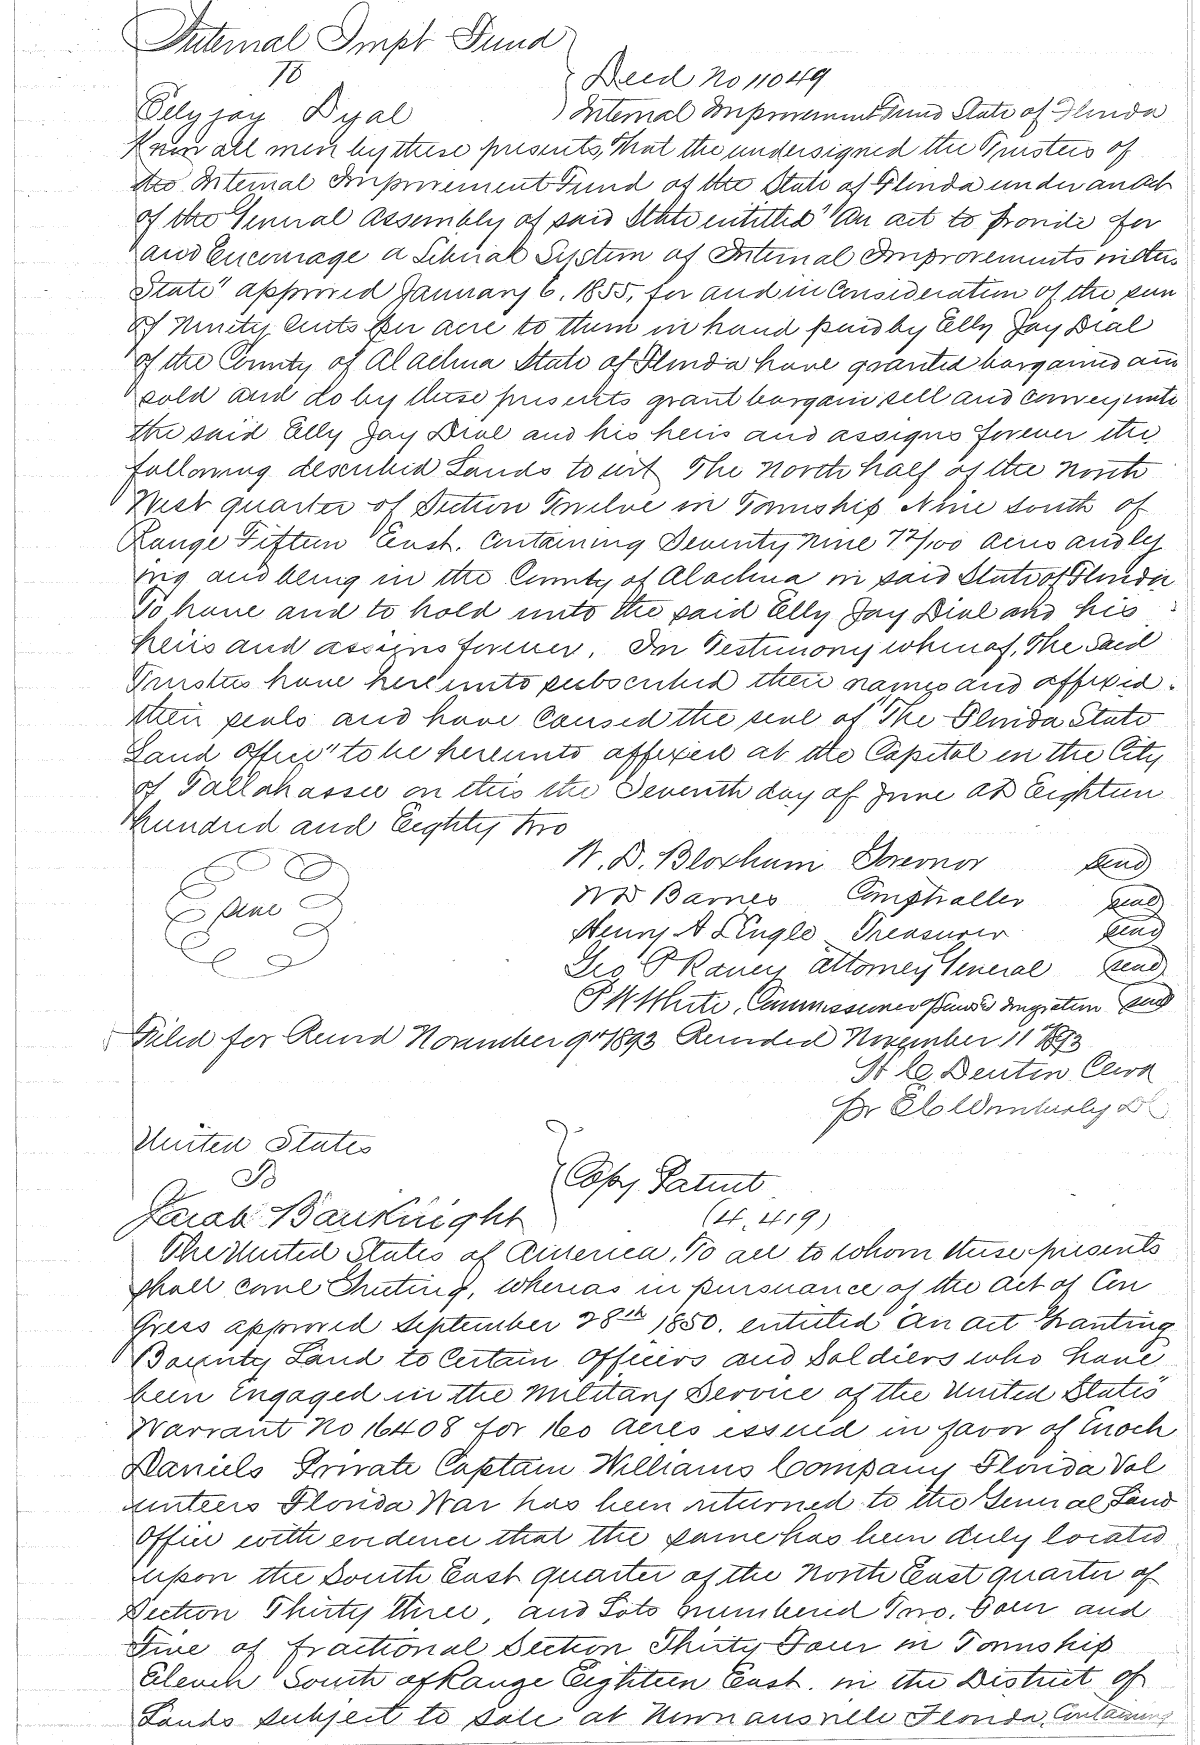 Internal Impt Fund
To
Deed No 11049
Elly jay Dyal
Internal Improvement Fund State of Florida
Know all men by these presents, That the undersigned the Trustees of
the Internal Improvement Fund of the State of Florida under an act
of the General Assembly of said State entitled "An act to provide for
and Encourage a Liberal System of Internal Improvements in the
State" approved January 6, 1855, for and in consideration of the sum
of Ninety Cents per acre to them in hand paid by Elly Jay Dial
of the County of Alachua State of Florida have granted bargained and
sold and do by these presents grant bargain sell and convey unto
the said Elly Jay Dial and his heirs and assigns forever the
following described Lands to wit The North half of the North
West quarter of Section Twelve in Township Nine South of
Range Fifteen East. Containing Seventy Nine 72/100 acres and ly
ing and being in the County of Alachua in said State of Florida
To have and to hold unto the said Elly Jay Dial and his
heirs and assigns forever. In Testimony whereof, The said
Trustees have hereunto subscribed their names and affixed
their seals and have Caused the seal of "The Florida State
Land Office" to be hereunto affixed at the Capitol in the City
of Tallahassee on this the Seventh day of June AD Eighteen
hundred and Eighty two
W. D. Bloxham Governor seal
seal
WD Barnes Comptroller seal
Henry A L'Engle Treasurer seal
Geo P Raney Attorney General seal
P W White, Commissioner Lands Imgration seal
Filed for Record November 9" 1893 Recorded November 11" 1893
H C Denton Clerk
pr E C Wimberly DC
United States
To
Copy Patent
Jacob Bauknight
(4,419)
The United States of America, To all to whom these presents
shall come Greeting, whereas in pursuance of the Act of Con
gress approved September 28th 1850. entitled "An act Granting
Bounty Land to Certain Officers and Soldiers who have
been Engaged in the Military Service of the United States"
Warrant No 16408 for 160 acres issued in favor of Enoch
Daniels Private Captain Williams Company Florida Vol
unteers Florida War has been returned to the General Land
Office with evidence that the same has been duly located
upon the South East quarter of the North East quarter of
Section Thirty three, and Lots numbered Two, Four and
Five of fractional Section Thirty Four in Township
Eleven South of Range Eighteen East. in the District of
Lands subject to sale at Newnansville Florida, Containing